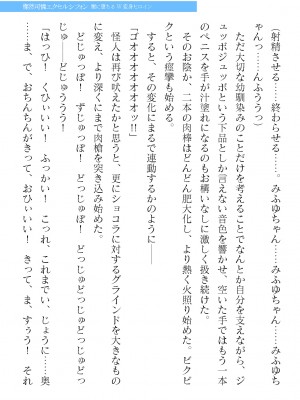 (射精させる……終わらせる……。みふゆちゃん……みふゆちゃんっ……んふううっ)
ただ大切な幼馴染みのことだけを考えてなんとか自分を支えながら、ジュッポジュッポという下品としか言えない音色を響かせ、空いた手ではもう一本のペニスを手が汁塗れになるのもお構いなしに激しく扱き続けた。
そのお陰か、二本の肉棒はどんどん肥大化し、より熱く火照り始めた。ビクビクという痙攣も始める。
すると、その変化にまるで連動するかのように――
「ゴオオオオオオオッ!!」
怪人は再び吠えたかと思うと、更にショコラに対するグラインドを大きなものに変え、より深くにまで肉槍を突き込み始めた。
どじゅっぽ! ずじゅっぽ! どっじゅぽ! どっじゅどっじゅどっじゅどっじゅ! どじゅううう!
「はっひ! くひぃいい! ふっかい! こっれ、これまでい、じょうに……奥に……ま、で、おちんちんがきって、おひいいい! きって、ま、すぅう! それ